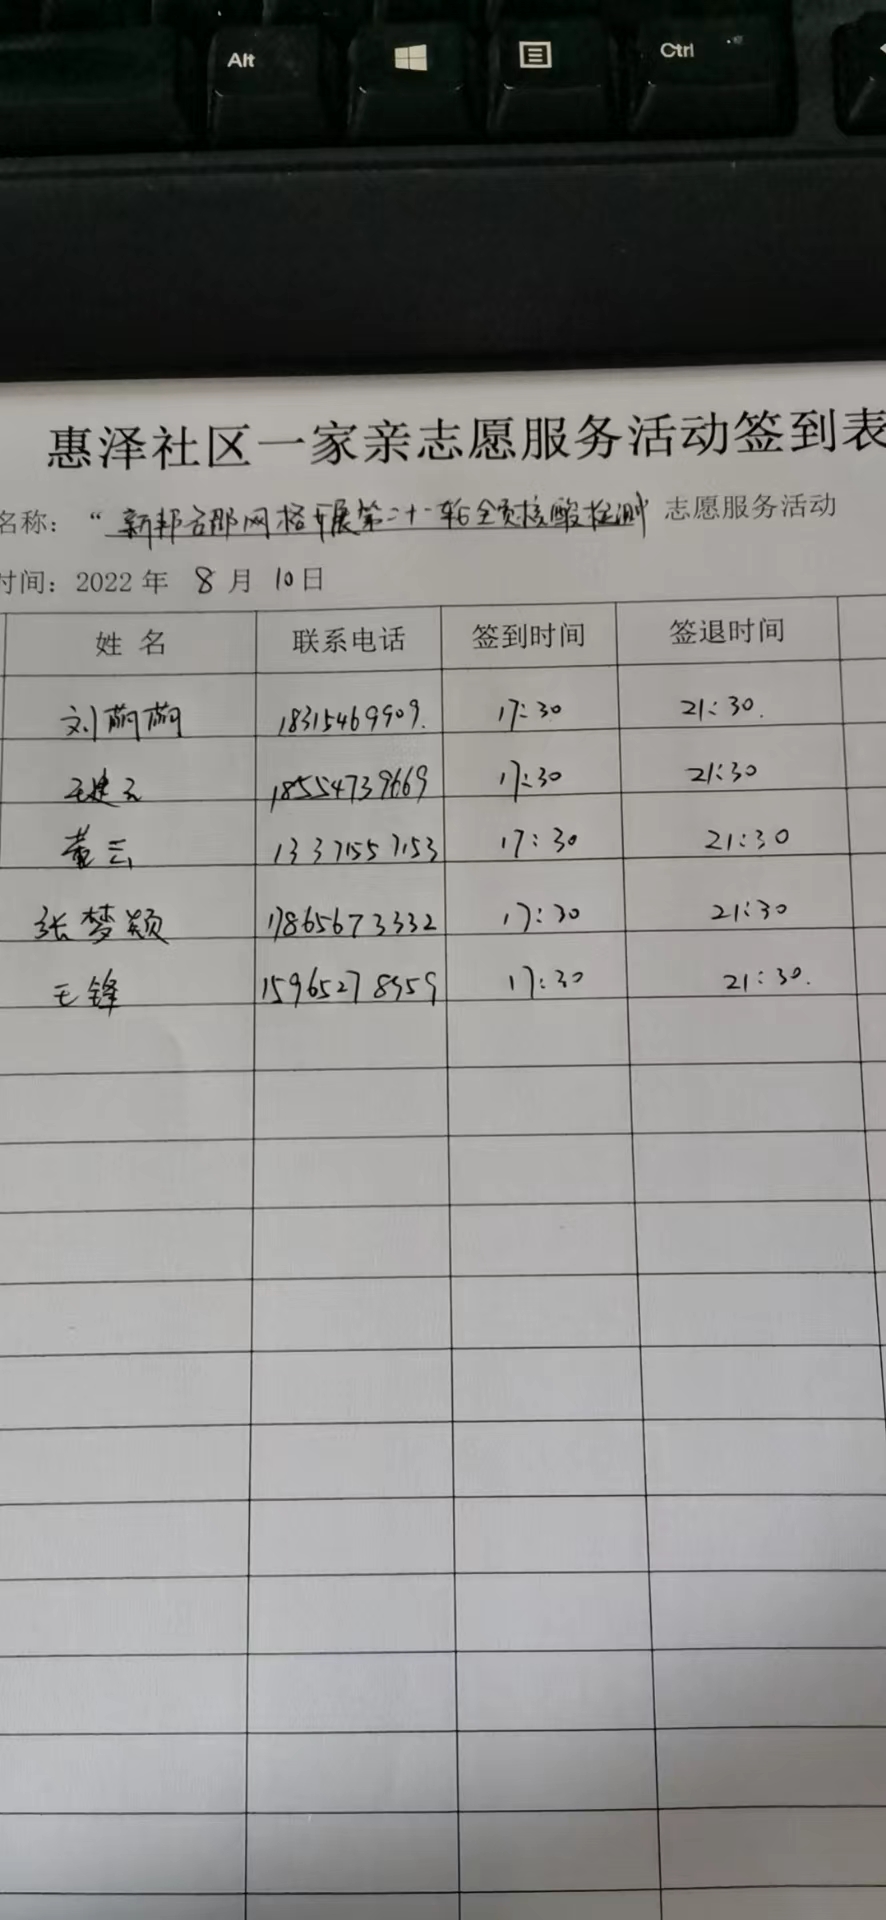 Alt
Ctrl
惠泽社区一家亲志愿服务活动签到表
名称：“新邦名郡网格开展第二十一轮全员核酸检测 志愿服务活动
时间：2022年 8月 10日
姓 名 联系电话 签到时间 签退时间
刘 18315469909. 17:30 21:30.
王建云 18554739669 17:30 21:30
董云 13371557153 17:30 21:30
张梦颖 17865673332 17:30 21:30
王锋 15965278959 17:30 21:30.